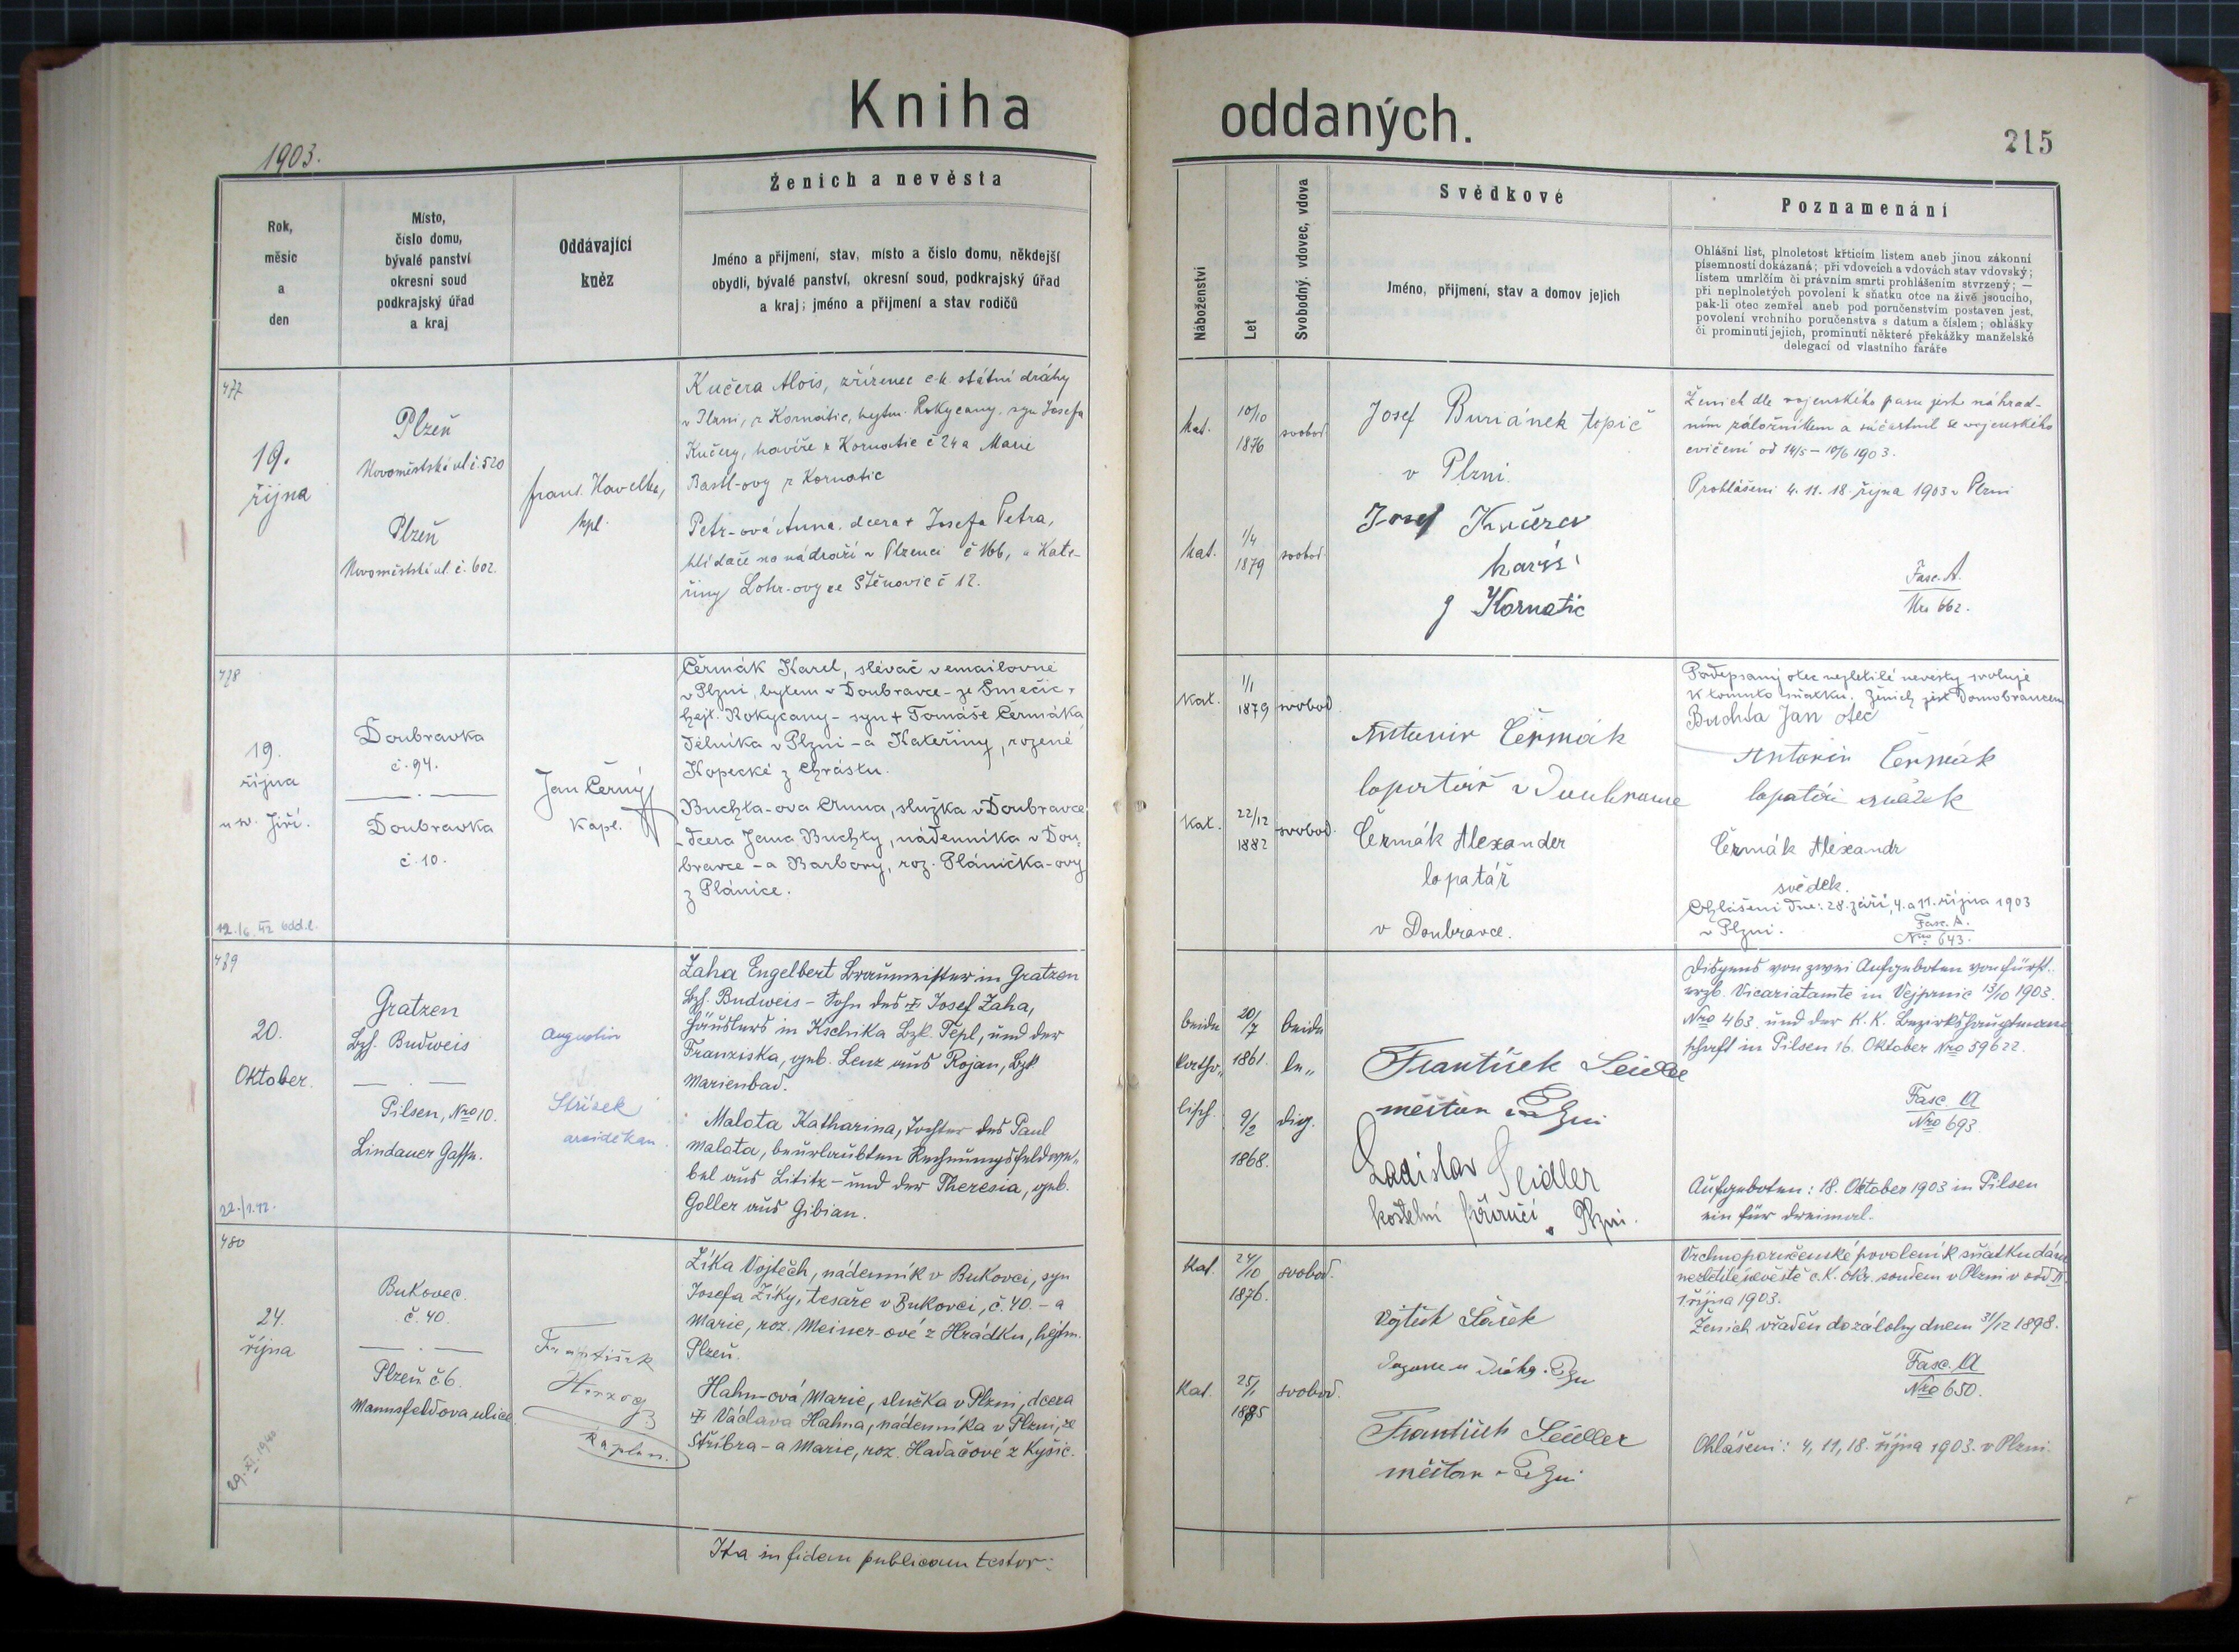 Kniha oddaných.
215
1903.
Rok,
měsíc
a
den
Místo,
číslo domu,
bývalé panství
okresní soud
podkrajský úřad
a kraj
Oddávající
kněz
Ženich a nevěsta
Jméno a přijmení, stav, místo a číslo domu, někdejší
obydlí, bývalé panství, okresní soud, podkrajský úřad
a kraj; jméno a přijmení a stav rodičů
Náboženství
Let
Svobodný, vdovec, vdova
Svědkové
Jméno, přijmení, stav a domov jejich
Poznamenání
Ohlášní list, plnoletost křticím listem aneb jinou zákonní
písemností dokázaná; při vdovcích a vdovách stav vdovský;
listem umrlčím či právním smrti prohlášením stvrzený; —
při neplnoletých povolení k sňatku otce na živě jsoucího,
pak-li otec zemřel aneb pod poručenstvím postaven jest,
povolení vrchního poručenstva s datum a číslem; ohlášky
či prominutí jejich, prominutí některé překážky manželské
delegací od vlastního faráře
477
19.
října
Plzeň
Novoměstská ul č. 520
Plzeň
Novoměstská ul. č. 602.
Frant. Havelka,
kpl.
Kučera Alois, zřízenec c.k. státní dráhy
v Plzni, z Kornatic, hejtm. Rokycany, syn Josefa
Kučery, havíře z Kornatic č 24 a Marie
Bastl-ovy z Kornatic
Petr-ová Anna, dcera + Josefa Petra,
hlídače na nádraží v Plzenci č 166, a Kate-
řiny Lohr-ovy ze Štěnovic č 12.
kat.
10/10
1876
svobod.
kat.
1/4
1879
svobod.
Josef Buriánek topič
v Plzni.
Josef Kučera
havíř
z Kornatic
Ženich dle vojenského pasu jest náhrad-
ním záložníkem a súčastnil se vojenského
cvičení od 14/5 – 10/6 1903.
Prohlášeni 4. 11. 18. října 1903 v Plzni
Fasc. A.
Nro 662.
478
19.
října
u sv. Jiří.
12./6. 42 odd. l.
Doubravka
č. 94.
Doubravka
č. 10.
Jan Černý
kapl.
Čermák Karel, slévač v emailovně
v Plzni, bytem v Doubravce – ze Smečic,
hejt. Rokycany – syn + Tomáše Čermáka
dělníka v Plzni – a Kateřiny, rozené
Kopecké z Chrástu.
Buchta-ova Anna, služka v Doubravce
– dcera Jana Buchty, nádenníka v Dou-
bravce – a Barbory, roz. Plánička-ovy
z Plánice.
Kat.
1/1
1879
svobod.
Kat.
22/12
1882
svobod.
Antonín Čermák
lopatář v Doubravce
Čermák Alexander
lopatář
v Doubravce.
Podepsaný otec nezletilé nevěsty svoluje
k tomuto sňatku. Ženich jest domobrancem
Buchta Jan otec
Antonín Čermák
lopatář svědek
Čermák Alexandr
svědek.
Ohlášeni dne: 28. září, 4. a 11. října 1903
v Plzni.
Fasc. A.
Nro 643.
479
20.
Oktober.
22./1.42.
Gratzen
Bzh. Budweis
Pilsen, Nro 10.
Lindauer Gasse.
Augustin
Střížek
arciděkan.
Zaha Engelbert Braumeister in Gratzen
Bzh. Budweis – Sohn des + Josef Zaha,
Häuslers in Kschika Bzk. Tepl, und der
Franziska, geb. Lenz aus Rojan, Bzk
Marienbad.
Malota Katharina, Tochter des Paul
Malota, beurlaubten Rechnungsfeldwe-
bel aus Lititz – und der Theresia, geb.
Goller aus Gibian.
beide
katho-
lisch.
20/7
1861.
9/2
1868.
beide
le-
dig.
František Seidler
měšťan v Plzni
Ladislav Seidler
kostelní v Plzni.
Dispens von zwei Aufgeboten von fürst.
erzb. Vicariatamte in Vejprnic 13/10 1903.
Nro 463. und der K. K. Bezirkshauptmann-
schaft in Pilsen 16. Oktober Nro 59622.
Fasc. A
Nro 693.
Aufgeboten: 18. Oktober 1903 in Pilsen
ein für dreimal.
480
24.
října
29. XI. 1940
Bukovec.
č. 40.
Plzeň č 6.
Mannsfeldova ulice.
František
Herzog
kaplan.
Zíka Vojtěch, nádenník v Bukovci, syn
Josefa Zíky, tesaře v Bukovci, č. 40. – a
Marie, roz. Meiner-ové z Hrádku, hejtm.
Plzeň.
Hahn-ová Marie, služka v Plzni, dcera
+ Václava Hahna, nádenníka v Plzni, ze
Stříbra – a Marie, roz. Hadačové z Kyšic.
Kat.
24/10
1876.
svobod.
Kat.
25/1
1885
svobod.
Vojtěch
František Seidler
měšťan v Plzni
Vrchnoporučenské povolení k sňatku dáno
nezletilé nevěstě c. k. okr. soudem v Plzni v odd II.
1 října 1903.
Ženich vřaděn do zálohy dnem 31/12 1898.
Fasc. A
Nro 650.
Ohlášeni: 4, 11, 18. října 1903. v Plzni.
Ita in fidem publicam testor: